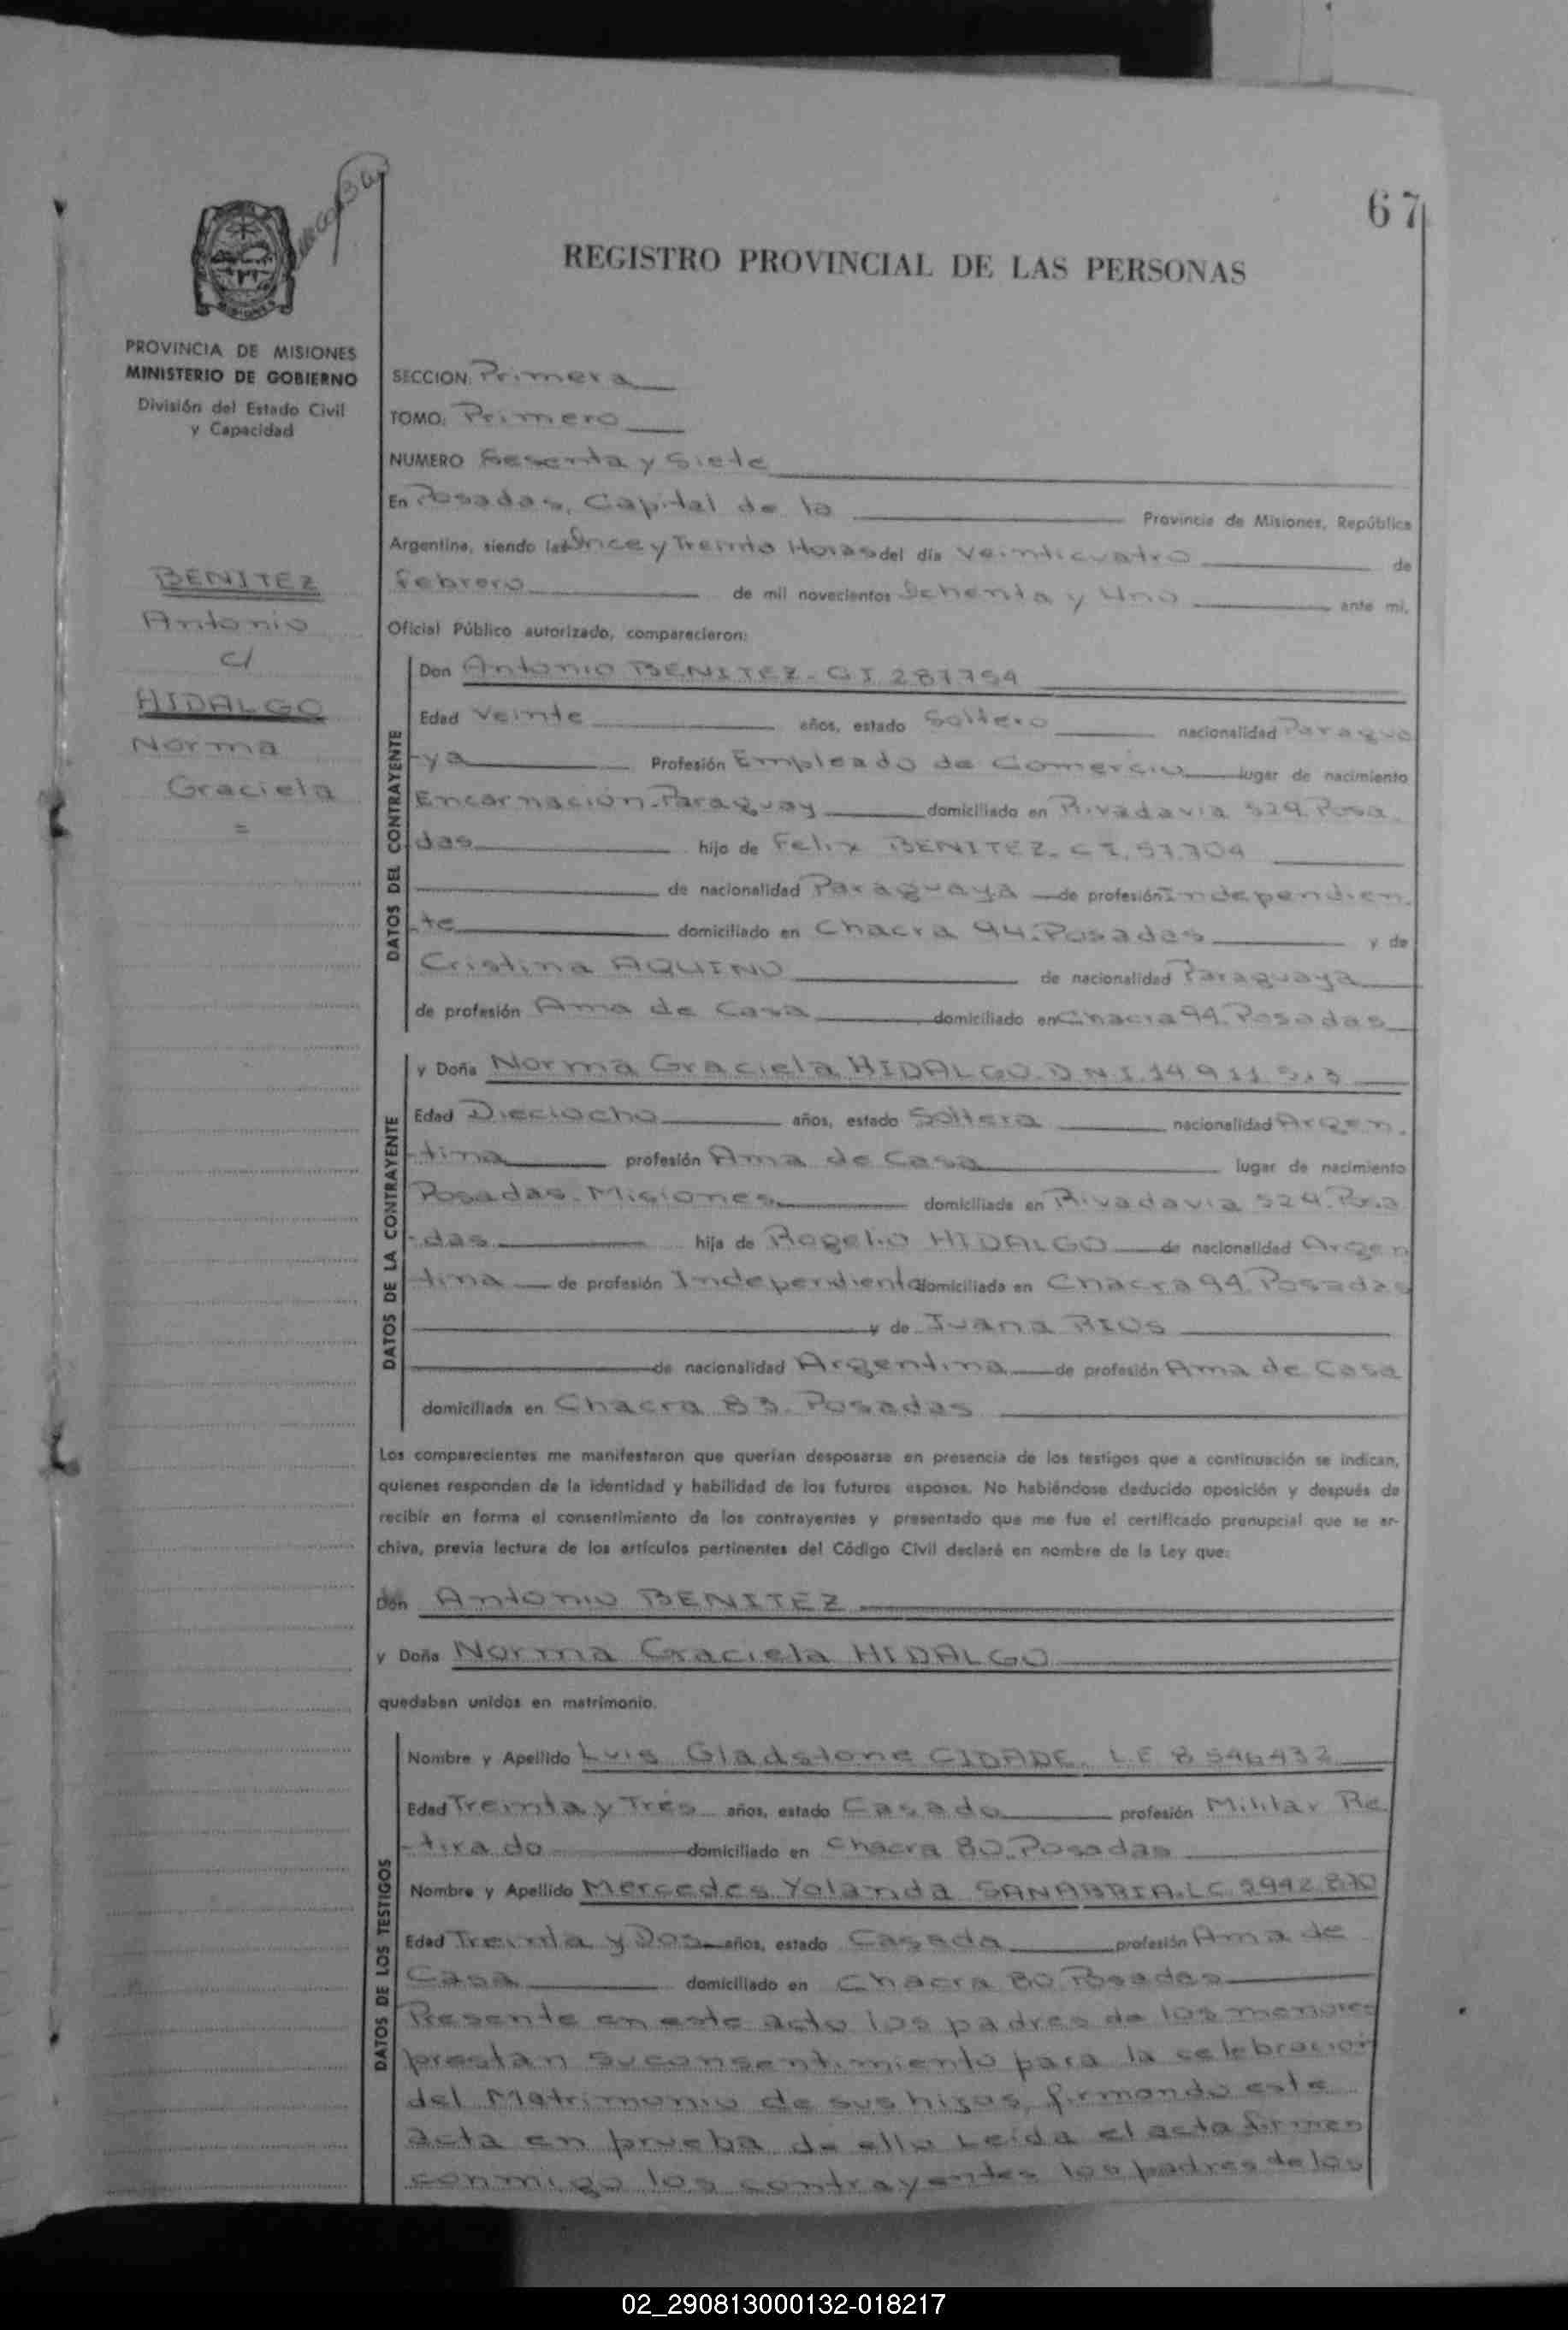 67
REGISTRO PROVINCIAL DE LAS PERSONAS
MISIONES
PROVINCIA DE MISIONES
MINISTERIO DE GOBIERNO
División del Estado Civil
y Capacidad
BENITEZ
Antonio
c/
HIDALGO
Norma
Graciela
=
SECCION: Primera
TOMO: Primero
NUMERO Sesenta y Siete
En Posadas, Capital de la Provincia de Misiones, República
Argentina, siendo las Once y Treinta Horas del día Veinticuatro de
Febrero de mil novecientos Ochenta y Uno ante mi,
Oficial Público autorizado, comparecieron:
DATOS DEL CONTRAYENTE
Don Antonio BENITEZ. CI 287754
Edad Veinte años, estado Soltero nacionalidad Paragua
-ya Profesión Empleado de Comercio lugar de nacimiento
Encarnación-Paraguay domiciliado en Rivadavia 524. Posa-
das hijo de Felix BENITEZ. CI. 57.704
de nacionalidad Paraguaya de profesión Independien-
-te domiciliado en Chacra 94. Posadas y de
Cristina AQUINO de nacionalidad Paraguaya
de profesión Ama de Casa domiciliado en Chacra 94. Posadas
DATOS DE LA CONTRAYENTE
y Doña Norma Graciela HIDALGO. DNI. 14 911
Edad Dieciocho años, estado Soltera nacionalidad Argen-
-tina profesión Ama de Casa lugar de nacimiento
Posadas-Misiones domiciliada en Rivadavia 524. Posa
-das hija de Rogelio HIDALGO de nacionalidad Argen
tina de profesión Independiente domiciliada en Chacra 94. Posadas
y de Juana RIOS
de nacionalidad Argentina de profesión Ama de Casa
domiciliada en Chacra 83. Posadas
Los comparecientes me manifestaron que querían desposarse en presencia de los testigos que a continuación se indican,
quienes responden de la identidad y habilidad de los futuros esposos. No habiéndose deducido oposición y después de
recibir en forma el consentimiento de los contrayentes y presentado que me fue el certificado prenupcial que se ar-
chiva, previa lectura de los artículos pertinentes del Código Civil declaré en nombre de la Ley que:
Don Antonio BENITEZ
y Doña Norma Graciela HIDALGO
quedaban unidos en matrimonio.
DATOS DE LOS TESTIGOS
Nombre y Apellido Luis Gladstone CIDADE. L.E 8 546432
Edad Treinta y Tres años, estado Casado profesión Militar Re
-tirado domiciliado en Chacra 80. Posadas
Nombre y Apellido Mercedes Yolanda SANABRIA. LC 9942.870
Edad Treinta y Dos años, estado Casada profesión Ama de
Casa domiciliado en Chacra 80. Posadas
Presente en este acto los padres de los menores
prestan su consentimiento para la celebracion
del Matrimonio de sus hijos, firmando este
acta en prueba de ello Leída el acta firman
conmigo los contrayentes los padres de los
02_290813000132-018217